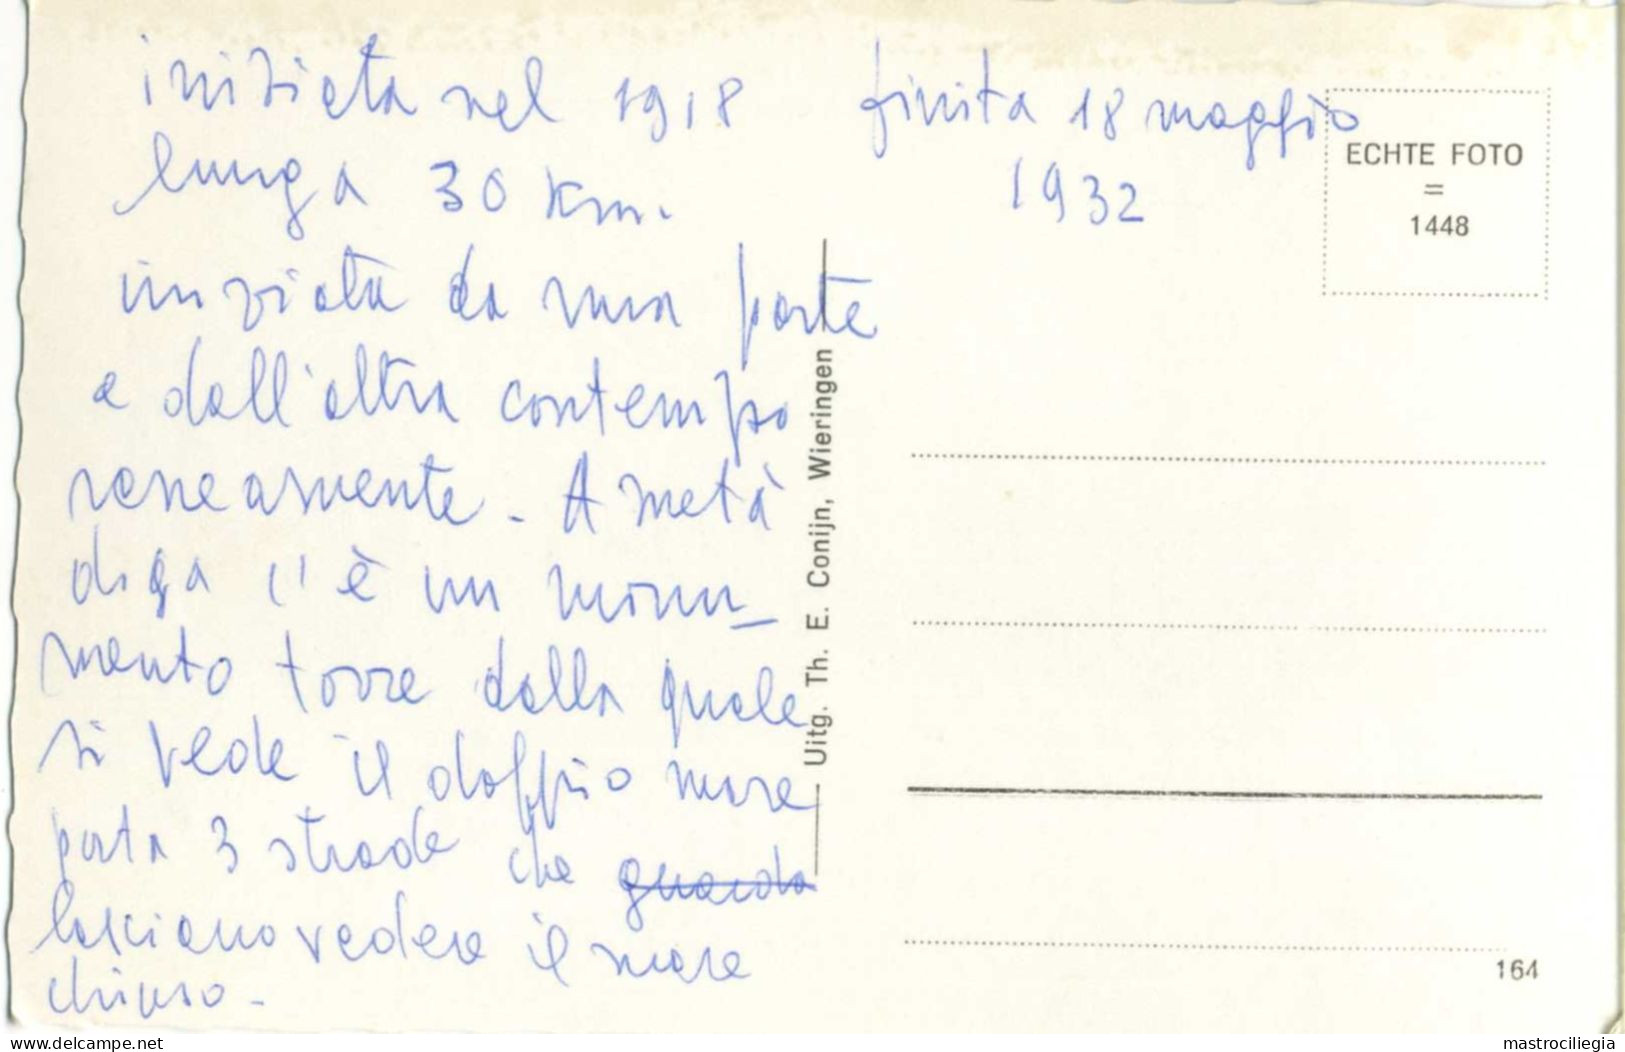 iniziata nel 1918 finita 18 maggio
1932
lunga 30 Km.
iniziata da una parte
e dall'altra contempo
raneamente - A metà
diga c'è un monu_
mento torre dalla quale
si vede il doppio mare
porta 3 strade che guarda
lasciano vedere il mare
chiuso -
ECHTE FOTO
=
1448
Uitg. Th. E. Conijn, Wieringen
164
www.delcampe.net
mastrociliegia